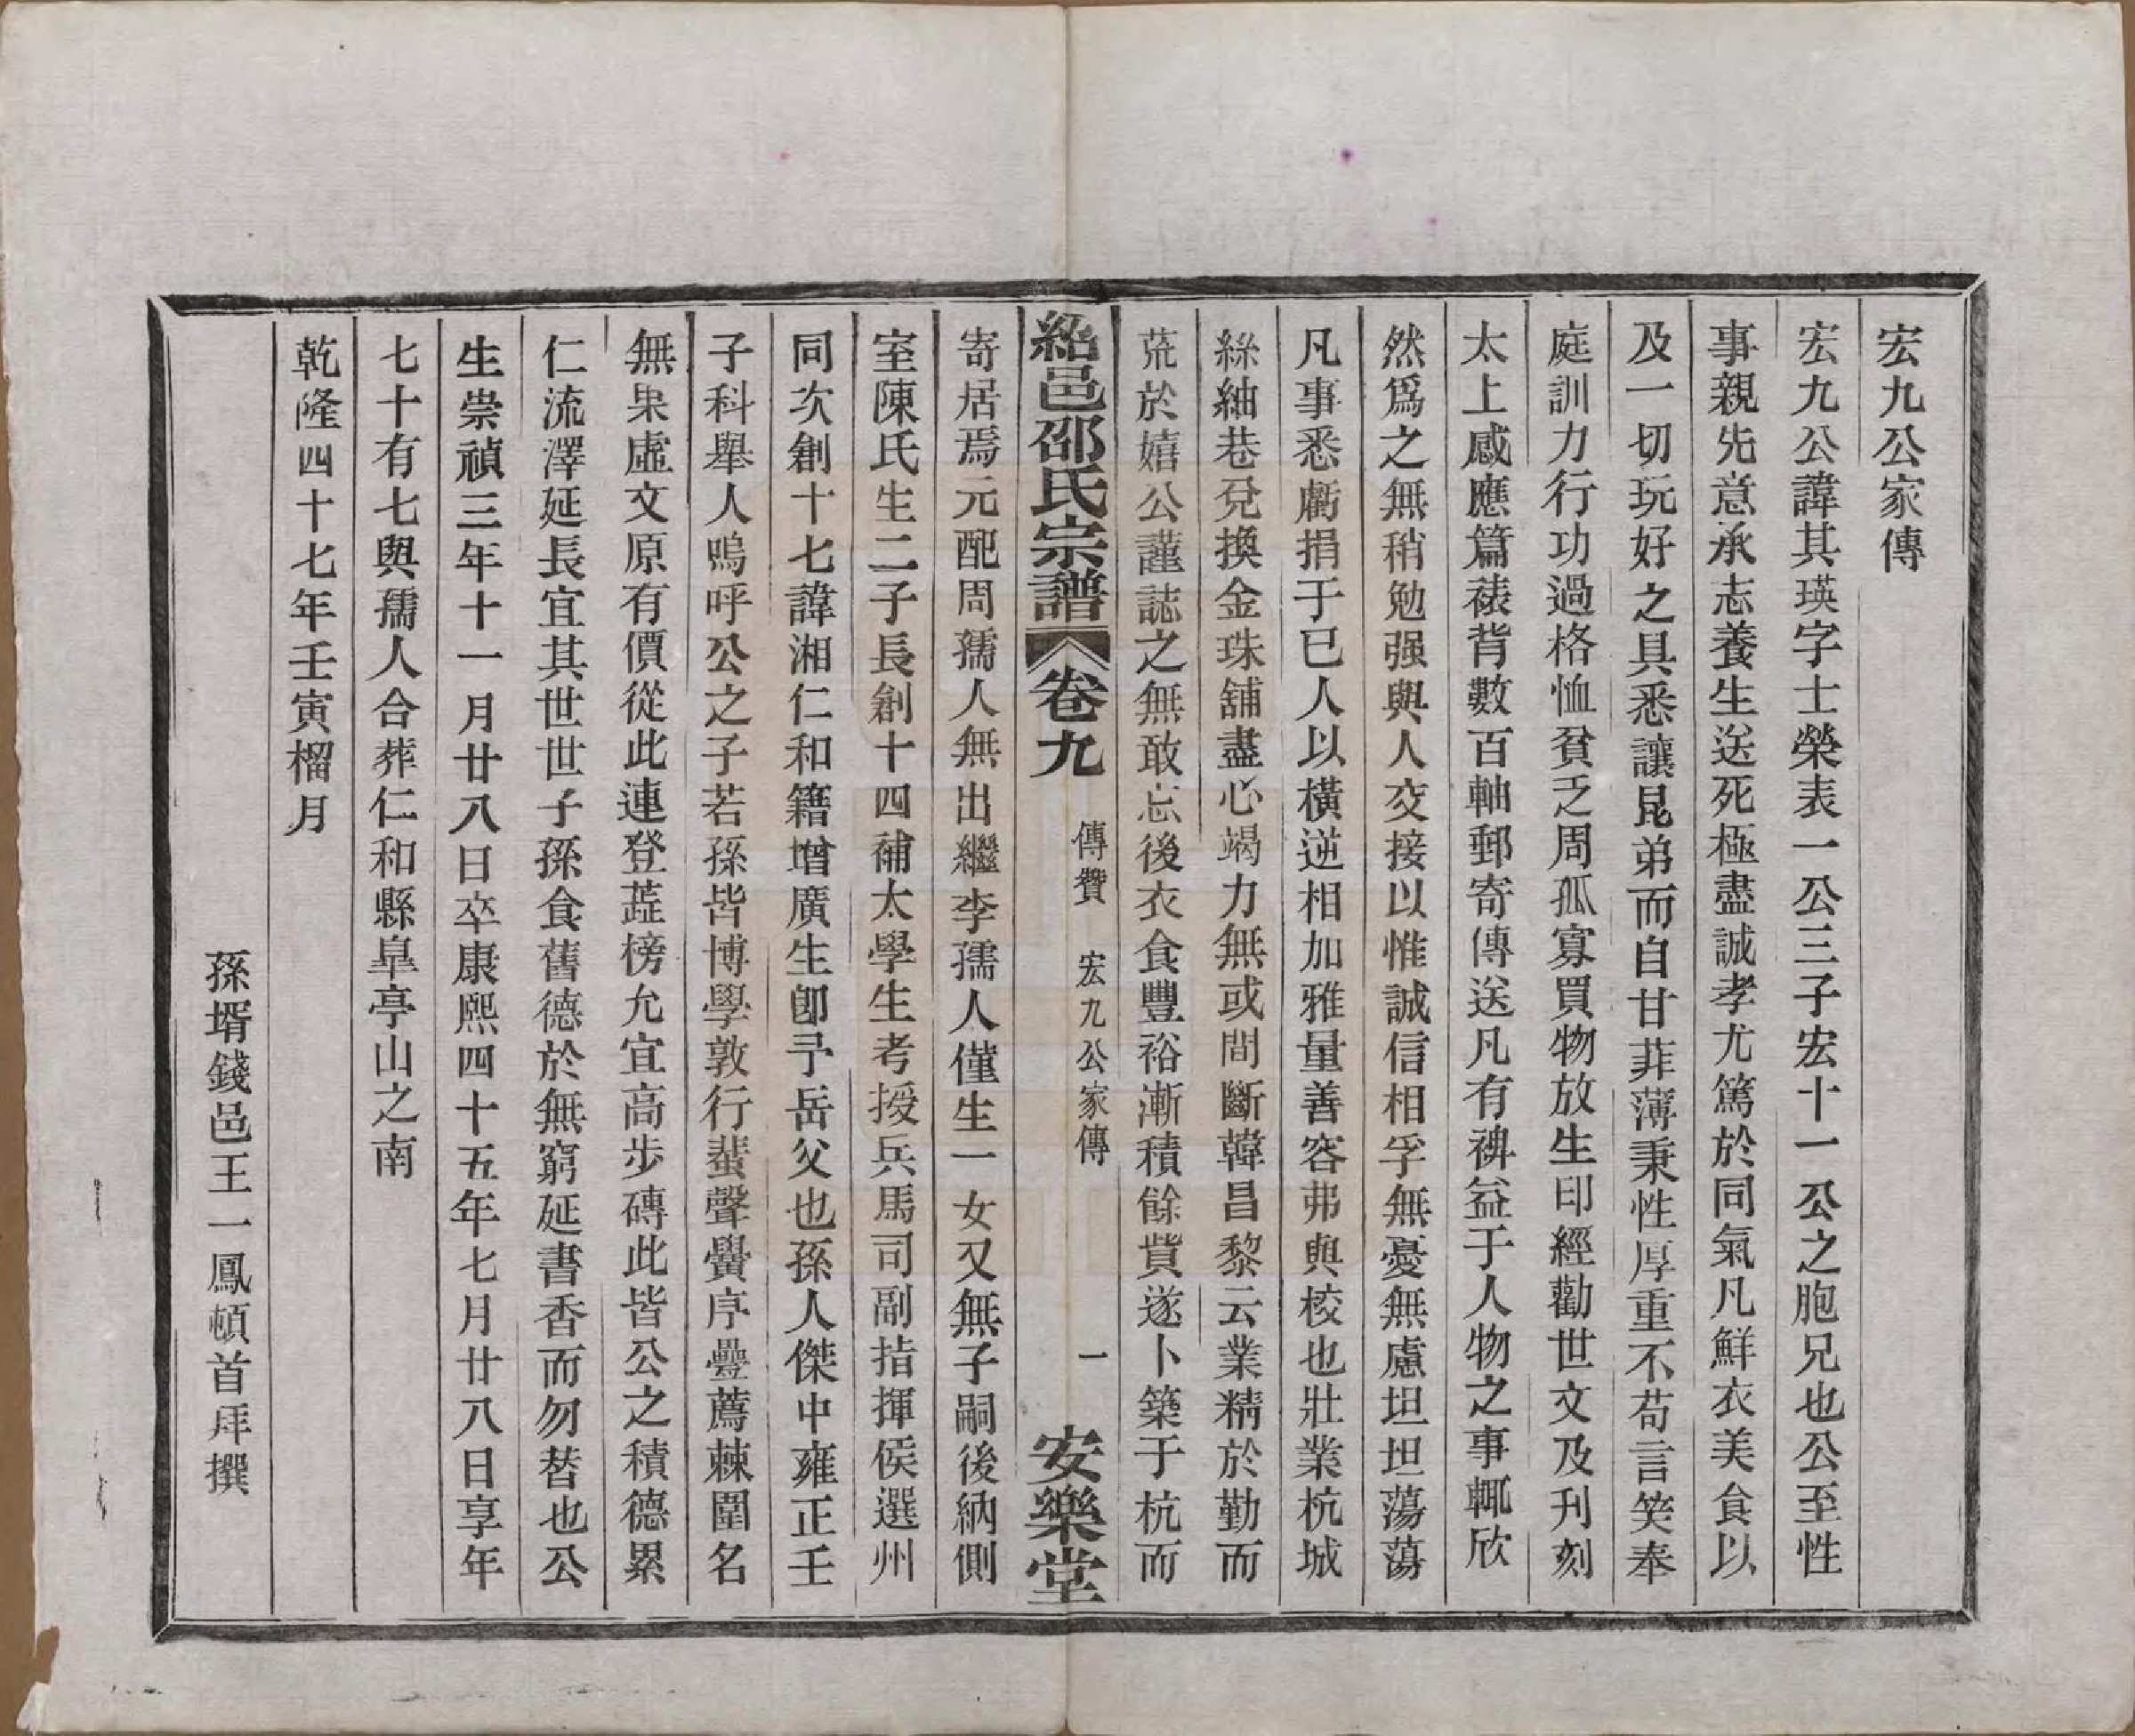 宏九公家傳
宏九公諱其瑛字士榮表一公三子宏十一公之胞兄也公至性
事親先意承志養生送死極盡誠孝尤篤於同氣凡鮮衣美食以
及一切玩好之具悉讓昆弟而自甘菲薄秉性厚重不苟言笑奉
庭訓力行功過格恤貧乏周孤寡買物放生印經勸世文及刋刻
太上感應篇裱背數百軸郵寄傳送凡有裨益于人物之事輒欣
然爲之無稍勉强與人交接以惟誠信相孚無憂無慮坦坦蕩蕩
凡事悉虧捐于已人以橫逆相加雅量善容弗與校也壯業杭城
絲紬巷兌換金珠舖盡心竭力無或間斷韓昌黎云業精於勤而
荒於嬉公謹誌之無敢忘後衣食豐裕漸積餘貲遂卜築于杭而
紹邑邵氏宗譜 卷九 傳贊 宏九公家傳 一 安樂堂
寄居焉元配周孺人無出繼李孺人僅生一女又無子嗣後納側
室陳氏生二子長創十四補太學生考授兵馬司副指揮侯選州
同次創十七諱湘仁和籍增廣生卽予岳父也孫人傑中雍正壬
子科舉人嗚呼公之子若孫皆博學敦行蜚聲黌序疊薦棘圍名
無杲虛文原有價從此連登蕋榜允宜高步磚此皆公之積德累
仁流澤延長宜其世世子孫食舊德於無窮延書香而勿替也公
生崇禎三年十一月廿八日卒康熙四十五年七月廿八日享年
七十有七與孺人合葬仁和縣臯亭山之南
乾隆四十七年壬寅榴月
孫壻錢邑王一鳳頓首拜撰